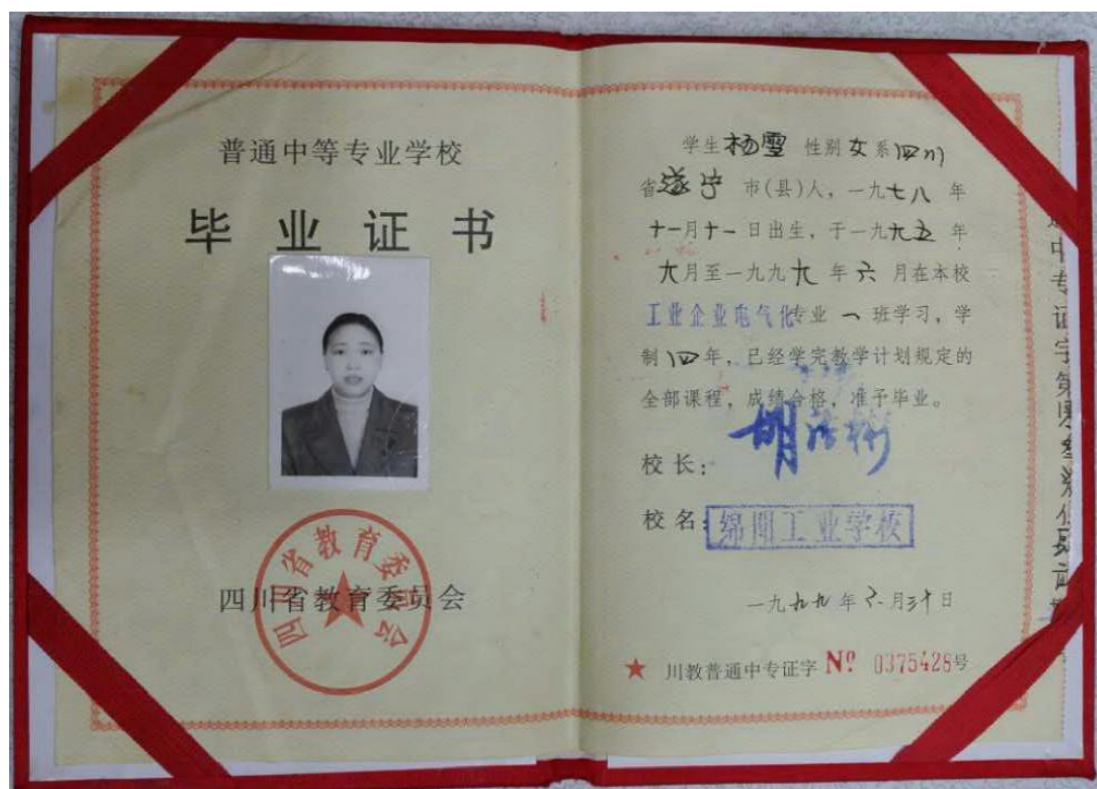 普通中等专业学校
毕业证书
四川省教育委员会
四川省教育委员会
学生杨雪 性别女系四川
省遂宁市(县)人，一九七八年
十一月十一日出生，于一九九五年
九月至一九九九年六月在本校
工业企业电气化专业一班学习，学
制四年，已经学完教学计划规定的
全部课程，成绩合格，准予毕业。
校长：胡
校名：绵阳工业学校
一九九九年六月三十日
★ 川教普通中专证字 Nº 0375428号
中专证字第